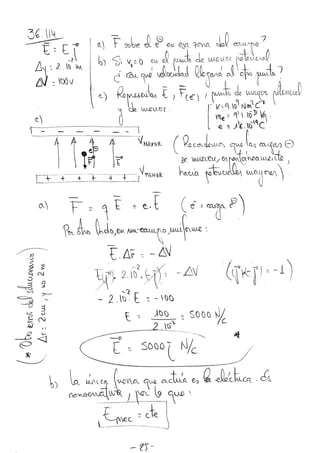 36. 114
E = E j
Δy = 2·10⁻² m
ΔV = 100V
a) F sobre el e⁻ en esa zona del campo?
b) Si v₀ = 0 en el punto de menor potencial
¿Con qué velocidad llegará al otro punto?
c) Representar E, F(e⁻), punto de mayor potencial
y de menor.
K = 9·10⁹ Nm²C⁻²
me = 9'1·10⁻³¹ kg
e = 1'6·10⁻¹⁹ C
c)
- - - - - -
V MENOR
e⁻
F
E
+ + + + + +
V MAYOR
(Recordemos que las cargas ⊖
se mueven, espontáneamente,
hacia potenciales mayores)
a) F = q E = e·E (e⁻: carga)
Por otro lado, en un campo uniforme:
E·Δr = -ΔV
E j · 2·10⁻² (-j) = -ΔV (j·(-j) = -1)
- 2·10⁻² E = -100
E = 100 / 2·10⁻² = 5000 N/C
E = 5000 j N/C
(* Otro error del solucionario
Δr = 2 cm, y no 2 m
b) La única fuerza que actúa es la eléctrica. Es
conservativa, por lo que:
Emec = cte
- 25 -